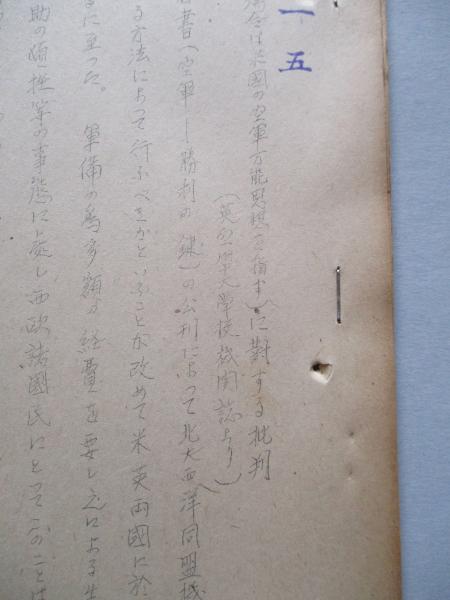 一五
場合は米國の空軍万能思想を指す)に對する批判
(英の陸大學校機関誌より)
書へ空軍ー勝利の鍵)の公刊によって北大西洋同盟
る方法によって行ふべきかといふことが改めて米英両國に於
るに至った。 軍備の為多額の経費を要し之による生
助の 等の事態に 西欧諸國民にとってこのことは